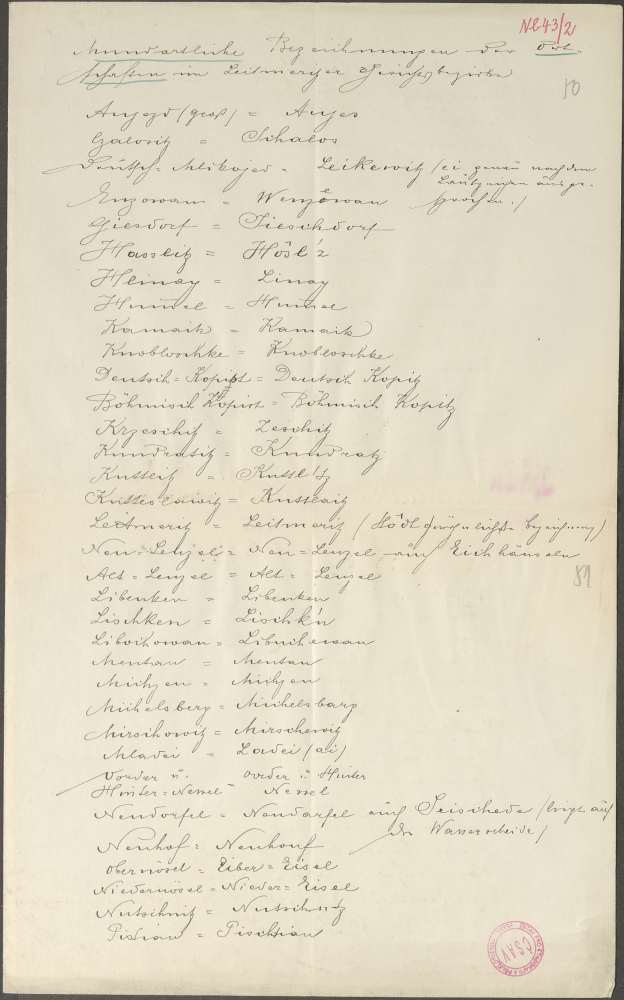 NL43/2
Mundartliche Bezeichnungen der Ort-
schaften im Leitmeritzer Gerichtsbezirke
50
Aujezd (groß) = Aujes
= Schalos
Deutsch = Mlikojed = Leikewitz (ei genau nach den
Enzowan = Wenzowan sprochen.)
Giesdorf = Gieschdorf
Hasslitz = Hösl'z
Hlinay = Linay
Hummel = Hummel
Kamaik = Kamaik
Knobloschke = Knobloschke
Deutsch = Kopist = Deutsch Kopitz
Böhmisch Kopist = Böhmisch Kopitz
Krzeschitz = Zeschitz
Kundratitz = Kundratz
Kuttlitz = Kuttl'tz
Kutteslawitz = Kuttlaitz
Leitmeritz = Leitmeritz (
Neu = Lenzel = Neu = Lenzel auch Eichhäuseln
Alt = Lenzel = Alt = Lenzel
51
Libenken = Libenken
Lischken = Lischk'n
Libochowan = Libuchowan
Mentau = Mentau
Michzen = Michzen
Michelsberg = Michelsbarg
Mirschowitz = Mirschewitz
Mladei = Ladei (ai)
Vorder u. vorder u. Hinter
Hinter = Nessel Nessel
Nendörfel = Nendarfel auch Geischede (liegt auf
der Wasserscheide)
Neuhof = Neuhouf
Obernösel = Eiber = Eisel
Niedernösel = Nieder = Eisel
Nutschnitz = Nutschntz
Pistian = Pischtian
ČSAV